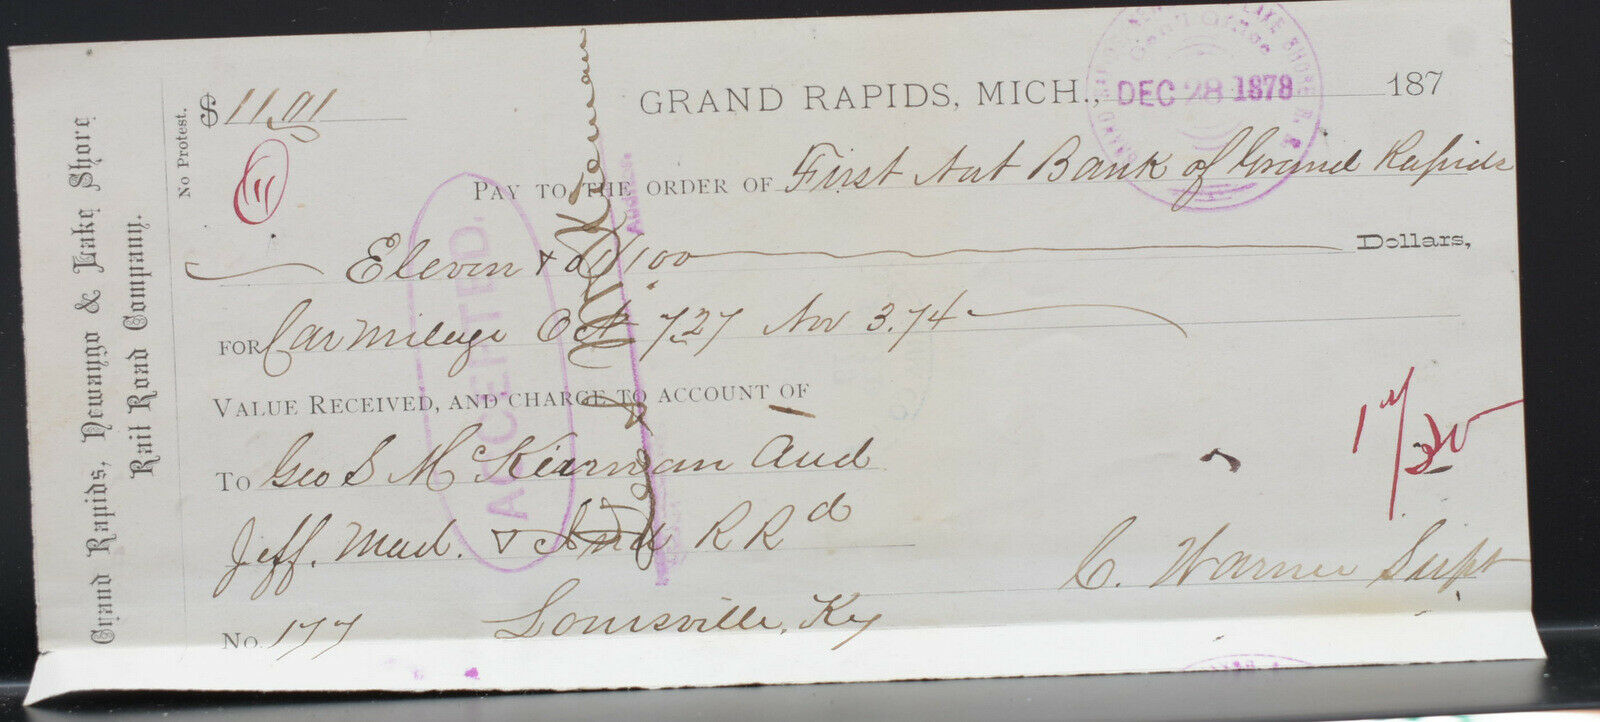 Grand Rapids, Newaygo & Lake Shore
Rail Road Company.
No Protest.
$ 11.01
GRAND RAPIDS, MICH., DEC 28 1878 187
11
PAY TO THE ORDER OF First Nat Bank of Grand Rapids
Eleven & 01/100 Dollars,
FOR Car Mileage Oct 7.27 Nov 3.74
VALUE RECEIVED, AND CHARGE TO ACCOUNT OF
To Geo S McKiernan Aud
Jeff. Mad. & Ind R Rd
C. Warner Supt
No. 177 Louisville, Ky
ACCEPTED,
Geo S McKiernan
Auditor